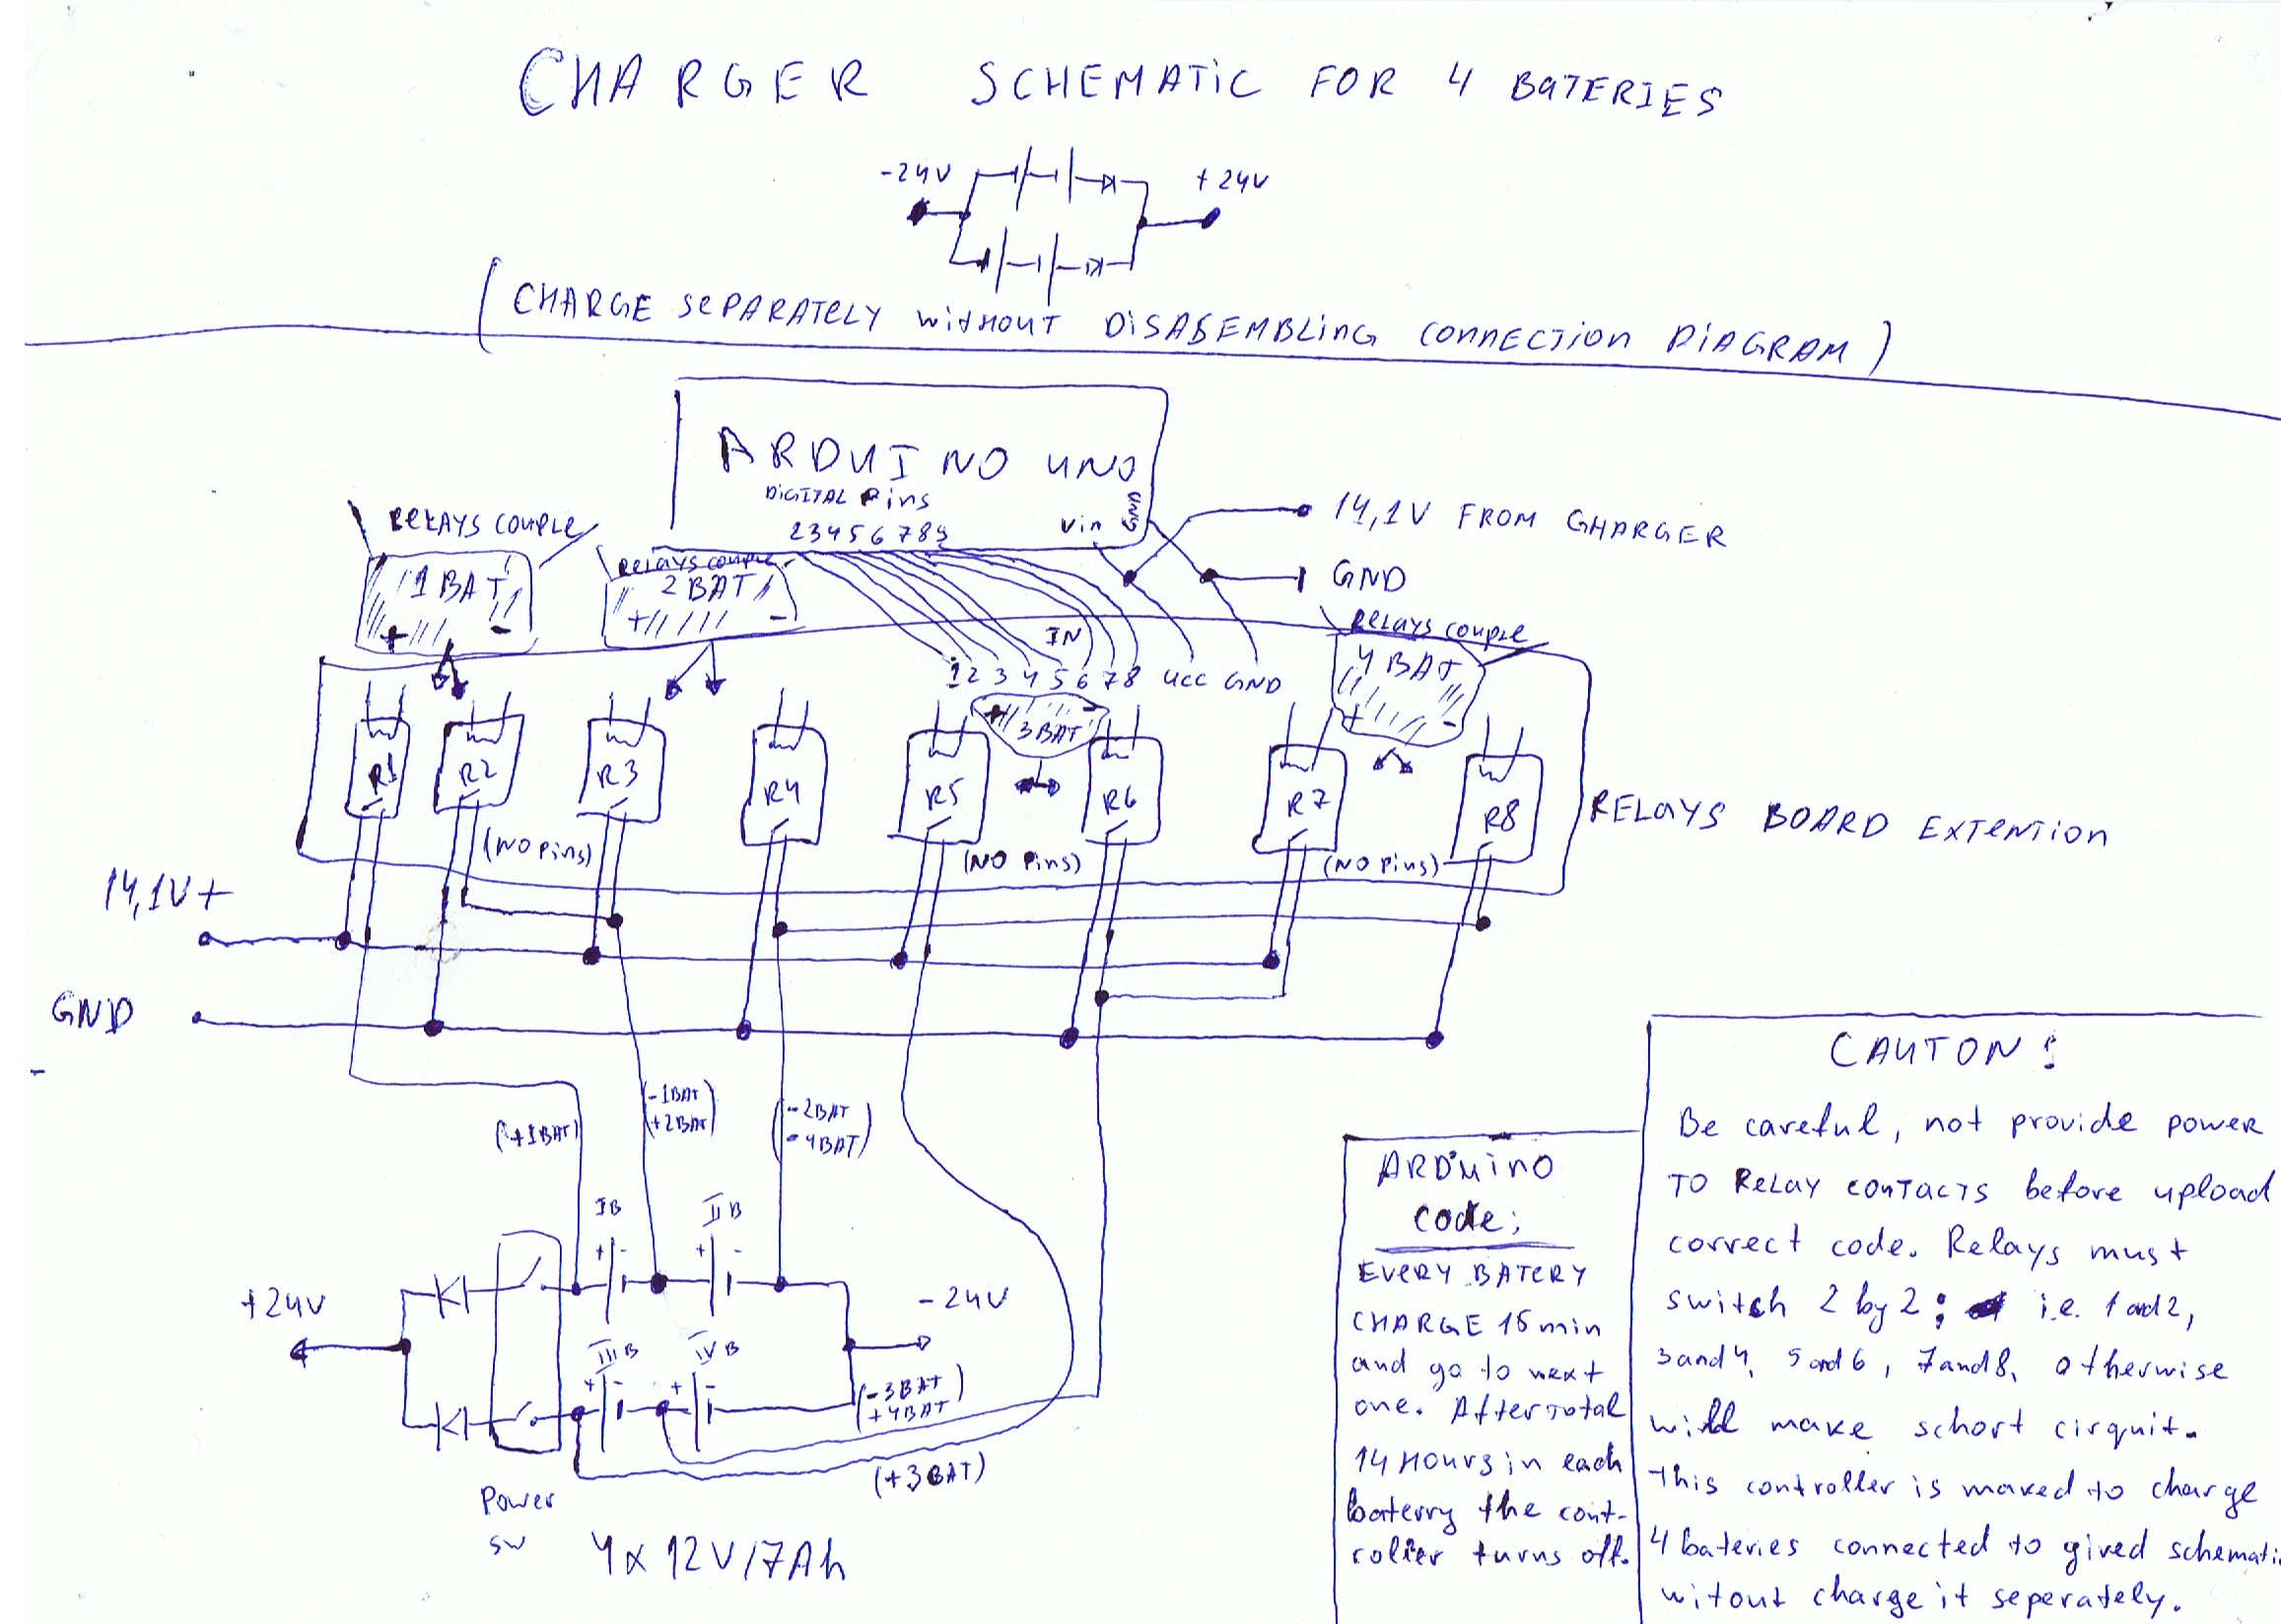 CHARGER SCHEMATIC FOR 4 BATERIES
-24V
+24V
(CHARGE SEPARATELY WITHOUT DISASEMBLING CONNECTION DIAGRAM)
ARDUINO UNO
DIGITAL Pins
2 3 4 5 6 7 8 9
Vin
GND
14,1V FROM GHARGER
GND
RELAYS COUPLE
1 BAT
+ -
Relays couple
2 BAT
+ -
Relays couple
4 BAT
+ -
IN
1 2 3 4 5 6 7 8 UCC GND
+ -
3 BAT
R1 R2 R3 R4 R5 R6 R7 R8
(NO Pins) (NO Pins) (NO Pins)
RELAYS BOARD EXTENTION
14,1V +
GND
-
(+1BAT)
(-1BAT
+2BAT)
(-2BAT
-4BAT)
I B
II B
+ - + -
+24V
-24V
III B
IV B
+ - + -
(-3BAT
+4BAT)
(+3BAT)
Power
SW
4 x 12V/7Ah
ARDuino
Code:
EVERY BATERY
CHARGE 15 min
and go to next
one. After total
14 Hours in each
baterry the cont-
roller turns off.
CAUTON!
Be careful, not provide power
TO Relay contacts before upload
correct code. Relays must
switch 2 by 2; i.e. 1 and 2,
3 and 4, 5 and 6, 7 and 8, otherwise
will make schort cirquit.
This controller is maked to charge
4 bateries connected to gived schemati
witout charge it seperately.